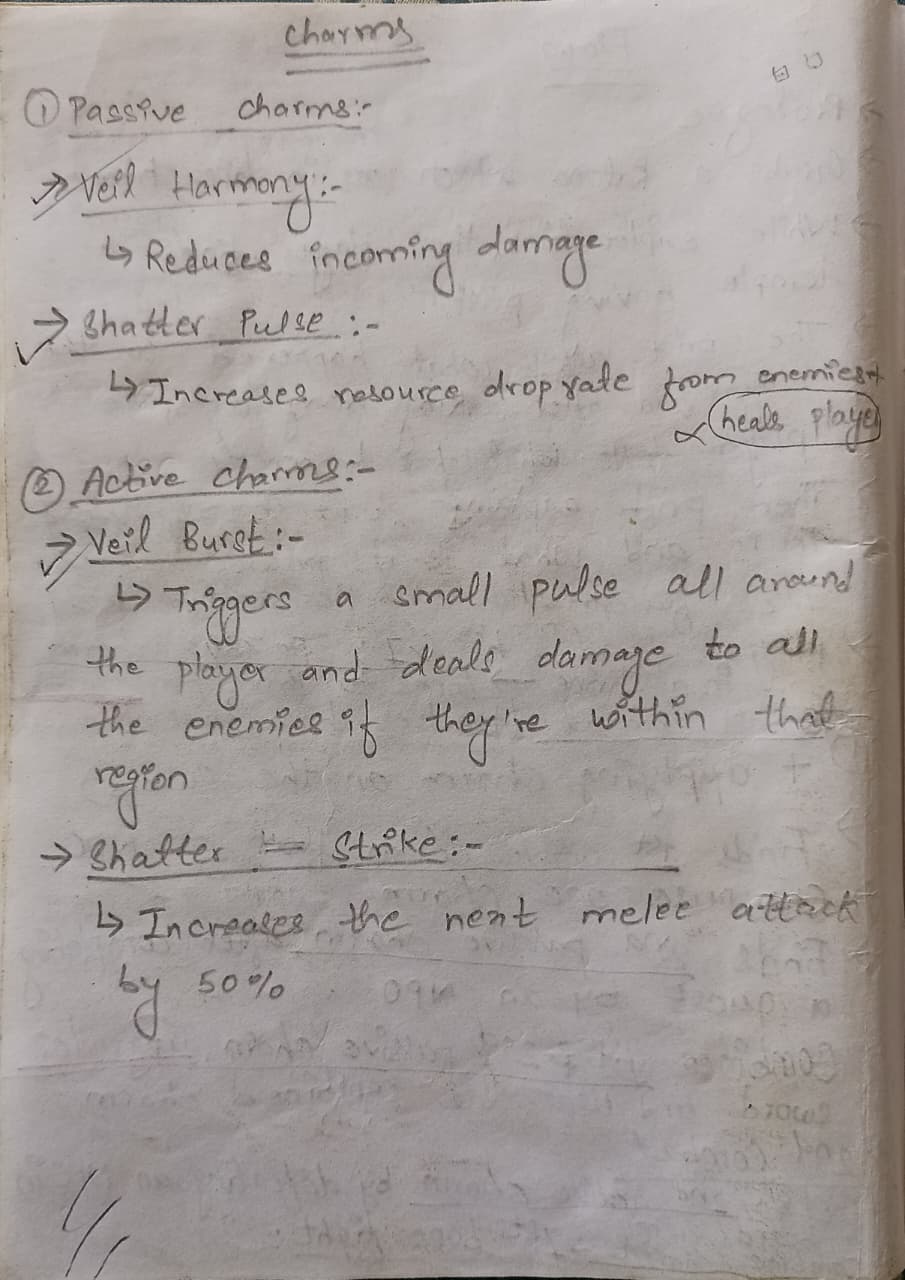 Charms
① Passive charms:-
→ Veil Harmony:-
↳ Reduces incoming damage
→ Shatter Pulse :-
↳ Increases resource drop rate from enemies +
heals player
② Active charms:-
→ Veil Burst:-
↳ Triggers a small pulse all around
the player and deals damage to all
the enemies if they're within that
region
→ Shatter - Strike:-
↳ Increases the next melee attack
by 50%